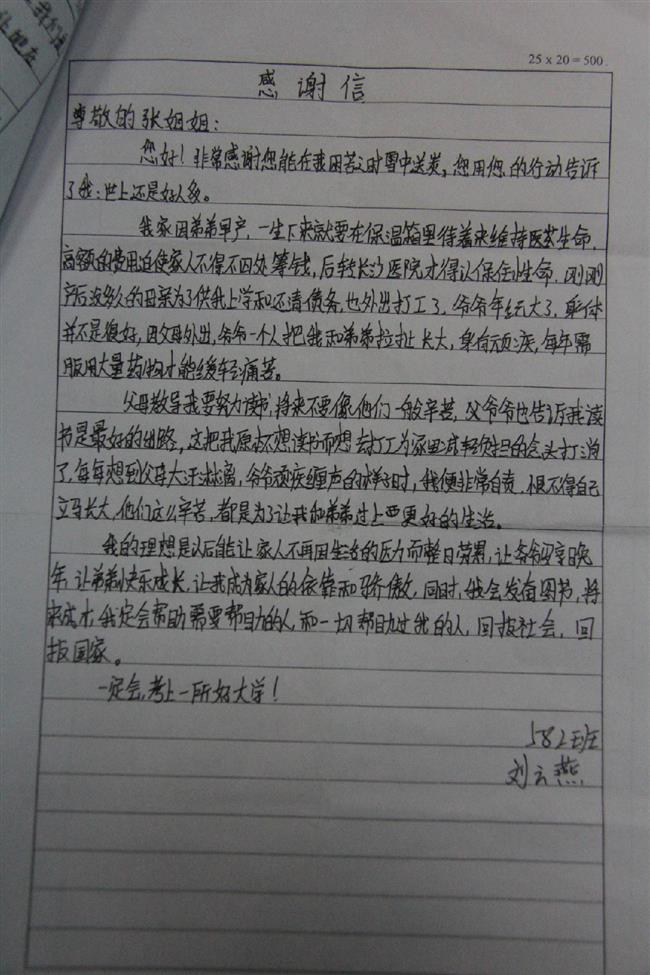 25 x 20 = 500.
感谢信
尊敬的张姐姐：
您好！非常感谢您能在我困苦之时雪中送炭，您用您的行动告诉
了我：世上还是好人多。
我家因弟弟早产，一生下来就要在保温箱里待着来维持生命，
高额的费用迫使家人不得不四处筹钱，后转长沙医院才得以保住生命，刚刚
产后没多久的母亲为了供我上学和还清债务，也外出打工了，爷爷年纪大了，身体
并不是很好，因父母外出，爷爷一个人把我和弟弟拉扯长大，身有顽疾，每年需
服用大量药物才能缓轻痛苦。
父母教导我要努力读书，将来不要像他们一般辛苦，爷爷也告诉我读
书是最好的出路，这把我原本不想读书而想去打工为家里减轻负担的念头打消
了，每每想到父母大汗淋漓，爷爷顽疾缠身的样子时，我便非常自责，恨不得自己
立马长大，他们这么辛苦，都是为了让我和弟弟过上更好的生活。
我的理想是以后能让家人不再因生活的压力而整日劳累，让爷爷安享晚
年，让弟弟快乐成长，让我成为家人的依靠和骄傲，同时，我会发奋图书，将
来成才，我定会帮助需要帮助的人，和一切帮助过我的人，回报社会，回
报国家。
一定会考上一所好大学！
582班
刘云燕